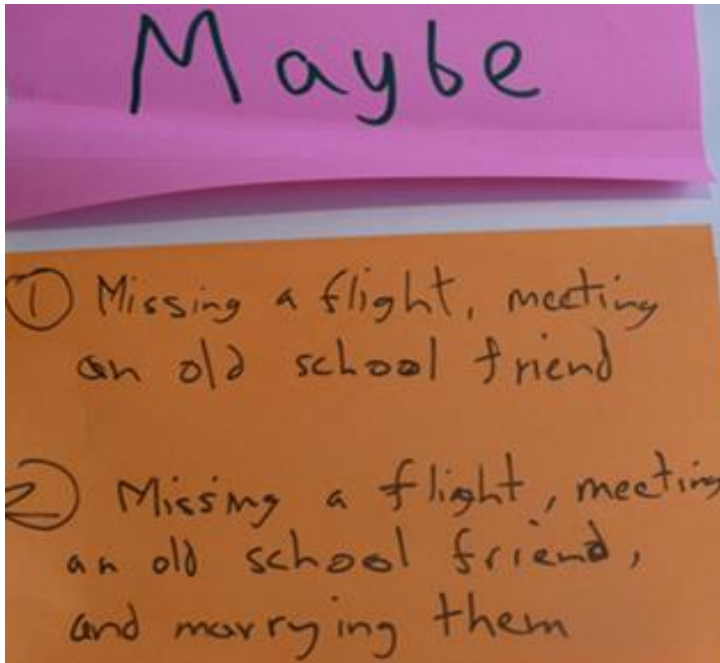 Maybe
① Missing a flight, meeting
an old school friend
② Missing a flight, meeting
an old school friend,
and marrying them